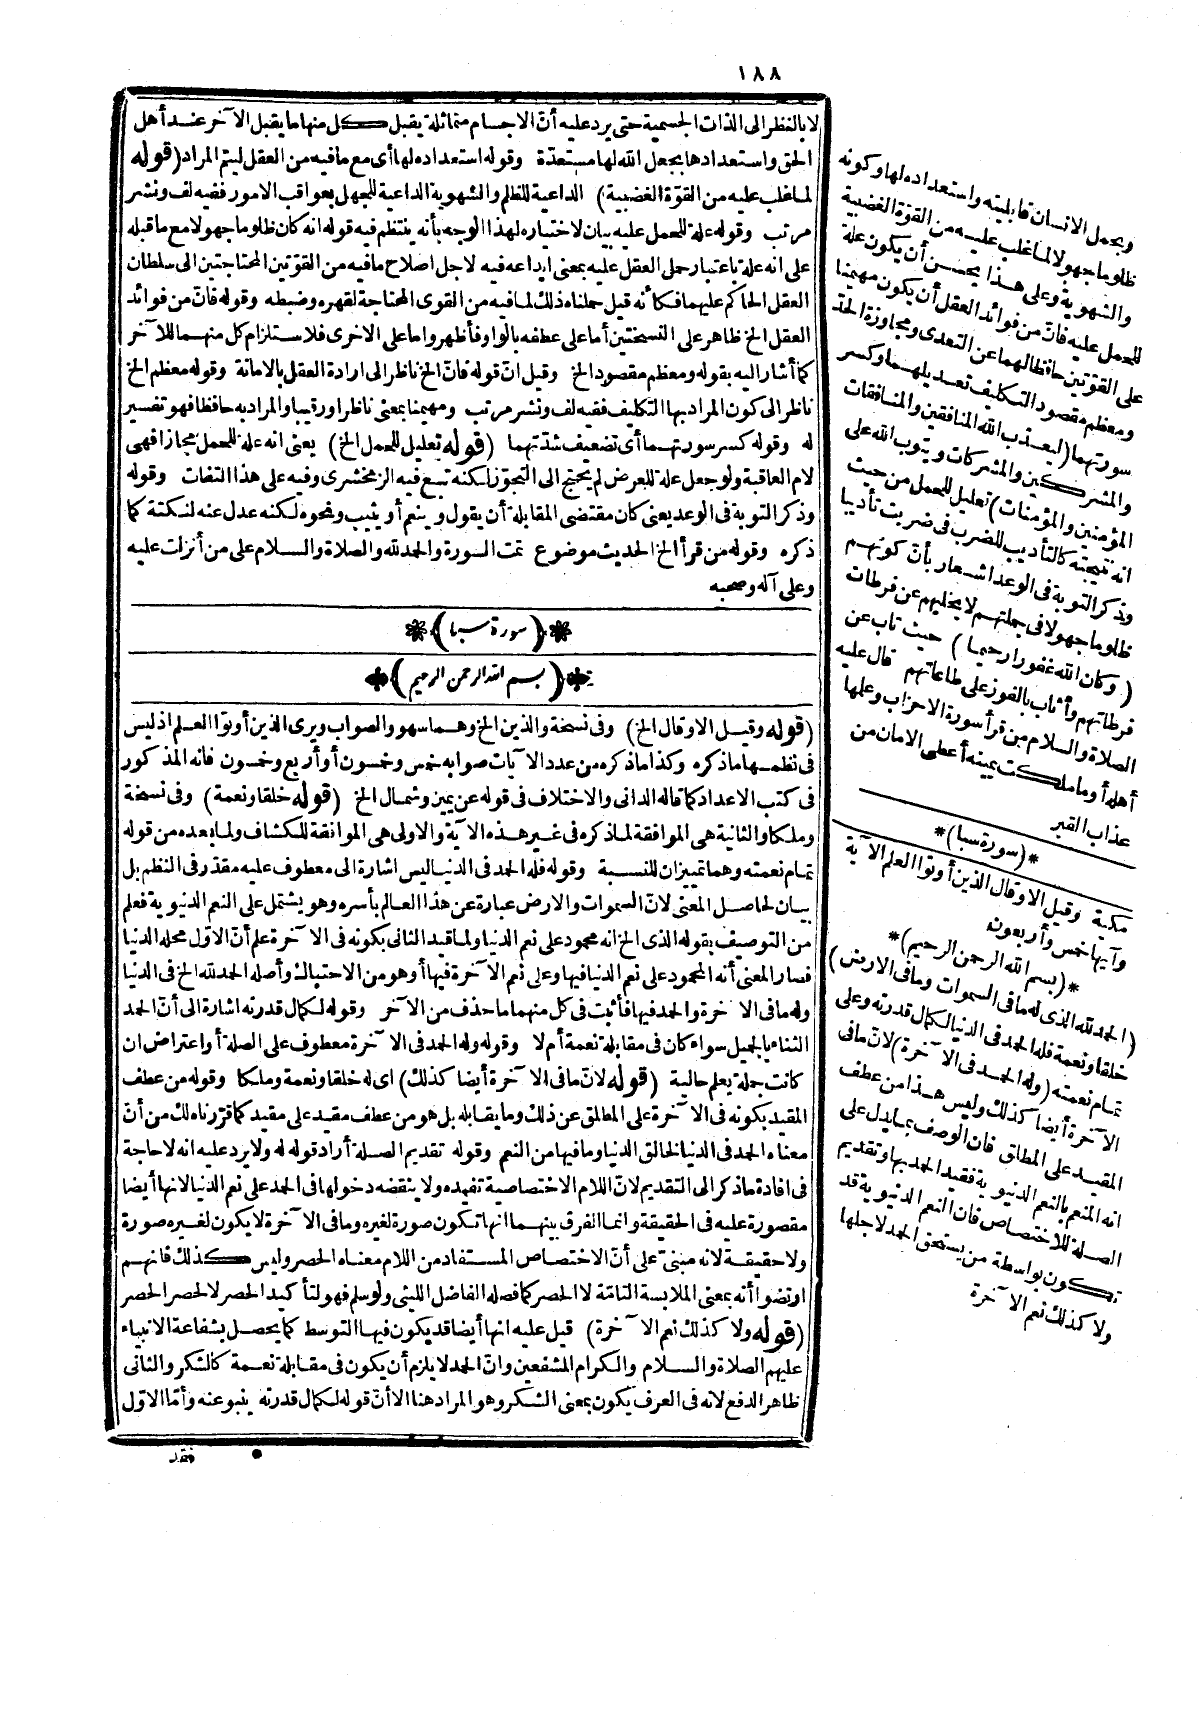 ١٨٨
لا بالنظر الى الذات الجسمية حتى يرد عليه أنّ الاجسام متماثلة يقبل كل منها ما يقبل الآخر عند أهل
الحق واستعدادها بجعل الله لها مستعدّة وقوله استعداده لها أى مع ما فيه من العقل ليتم المراد (قوله
لما غلب عليه من القوّة الغضبية) الداعية للظلم والشهوية الداعية للجهل بعواقب الامور ففيه لف ونشر
مرتب وقوله علة للحمل عليه بيان لاختياره لهذا الوجه بأنه ينتظم فيه قوله انه كان ظلوما جهولا مع ما قبله
على انه علة باعتبار حمل العقل عليه بمعنى ايداعه فيه لاجل اصلاح ما فيه من القوّتين المحتاجتين الى سلطان
العقل الحاكم عليهما فكأنه قيل حملناه ذلك لما فيه من القوى المحتاجة لقهره وضبطه وقوله فانّ من فوائد
العقل الخ ظاهر على النسختين أما على عطفه بالواو فأظهر واما على الاخرى فلاستلزام كل منهما للآخر
كما أشار اليه بقوله ومعظم مقصود الخ وقيل انّ قوله فانّ الخ ناظر الى ارادة العقل بالامانة وقوله معظم الخ
ناظر الى كون المراد بها التكليف ففيه لف ونشر مرتب ومهيمنا بمعنى ناظرا ورقيبا والمراد به حافظا فهو تفسير
له وقوله كسر سورتهما أى تضعيف شدّتهما (قوله تعليل للحمل الخ) يعنى انه علة للحمل مجازا فهى
لام العاقبة ولو جعل علة للعرض لم يحتج الى التجوّز لكنه تبع فيه الزمخشرى وفيه على هذا التفات وقوله
وذكر التوبة فى الوعد يعنى كان مقتضى المقابلة أن يقول وينعم أو يثيب ونحوه لكنه عدل عنه لنكتة كما
ذكره وقوله من قرأ الخ الحديث موضوع تمت السورة والحمد لله والصلاة والسلام على من أنزلت عليه
وعلى آله وصحبه
(سورة سبا)
(بسم الله الرحمن الرحيم)
(قوله وقيل الا وقال الخ) وفى نسخة والذين الخ وهما سهو والصواب ويرى الذين أوتوا العلم اذ ليس
فى نظمها ما ذكره وكذا ما ذكره من عدد الآيات صوابه خمس وخمسون أو أربع وخمسون فانه المذكور
فى كتب الاعداد كما قاله الدانى والاختلاف فى قوله عن يمين وشمال الخ (قوله خلقا ونعمة) وفى نسخة
وملكا والثانية هى الموافقة لما ذكره فى غير هذه الآية والاولى هى الموافقة للكشاف ولما بعده من قوله
تمام نعمته وهما تمييزان للنسبة وقوله فله الحمد فى الدنيا ليس اشارة الى معطوف عليه مقدّر فى النظم بل
بيان لحاصل المعنى لانّ السموات والارض عبارة عن هذا العالم بأسره وهو يشتمل على النعم الدنيوية فعلم
من التوصيف بقوله الذى الخ انه محمود على نعم الدنيا ولما قيد الثانى بكونه فى الآخرة علم أنّ الاوّل محله الدنيا
فصار المعنى أنه المحمود على نعم الدنيا فيها وعلى نعم الآخرة فيها أو هو من الاحتباك وأصله الحمد لله الخ فى الدنيا
وله ما فى الآخرة والحمد فيها فأثبت فى كل منهما ما حذف من الآخر وقوله لكمال قدرته اشارة الى أنّ الحمد
الثناء بالجميل سواء كان فى مقابلة نعمة أم لا وقوله وله الحمد فى الآخرة معطوف على الصلة أو اعتراض ان
كانت جملة يعلم حالية (قوله لانّ ما فى الآخرة أيضا كذلك) اى له خلقا ونعمة وملكا وقوله من عطف
المقيد بكونه فى الآخرة على المطلق عن ذلك وما يقابله بل هو من عطف مقيد على مقيد كما قررناه لك من أنّ
معناه الحمد فى الدنيا لخالق الدنيا وما فيها من النعم وقوله تقديم الصلة أراد قوله له ولا يرد عليه انه لا حاجة
فى افادة ما ذكر الى التقديم لانّ اللام الاختصاصية تفيده ولا ينقضه دخولها فى الحمد على نعم الدنيا لانها أيضا
مقصورة عليه فى الحقيقة وانما الفرق بينهما انها تكون صورة لغيره وما فى الآخرة لا يكون لغيره صورة
ولا حقيقة لانه مبنىّ على أنّ الاختصاص المستفاد من اللام معناه الحصر وليس كذلك فانهم
ارتضوا أنه بمعنى الملابسة التامّة لا الحصر كما فصله الفاضل الليثى ولو سلم فهو لتأكيد الحصر لا لحصر الحصر
(قوله ولا كذلك نعم الآخرة) قيل عليه انها أيضا قد يكون فيها التوسط كما يحصل بشفاعة الانبياء
عليهم الصلاة والسلام والكرام المشفعين وانّ الحمد لا يلزم أن يكون فى مقابلة نعمة كالشكر والثانى
ظاهر الدفع لانه فى العرف يكون بمعنى الشكر وهو المراد هنا الا أنّ قوله لكمال قدرته ينبو عنه وأمّا الاوّل
فقد
ويحمل الانسان قابليته واستعداده لها وكونه
ظلوما جهولا لما غلب عليه من القوّة الغضبية
والشهوية وعلى هذا يحسن أن يكون علة
للحمل عليه فانّ من فوائد العقل أن يكون مهيمنا
على القوّتين حافظا لهما عن التعدى ومجاوزة الحدّ
ومعظم مقصود التكليف تعديلهما وكسر
سورتهما (ليعذب الله المنافقين والمنافقات
والمشركين والمشركات ويتوب الله على
المؤمنين والمؤمنات) تعليل للحمل من حيث
انه نتيجته كالتأديب للضرب فى ضربت تأديبا
وذكر التوبة فى الوعد اشعار بأنّ كونهم
ظلوما جهولا فى جبلتهم لا يخليهم عن فرطات
(وكان الله غفورا رحيما) حيث تاب عن
فرطاتهم وأثاب بالفوز على طاعاتهم قال عليه
الصلاة والسلام من قرأ سورة الاحزاب وعلمها
أهله أو ما ملكت يمينه أعطى الامان من
عذاب القبر
*(سورة سبا)*
مكية وقيل الا وقال الذين أوتوا العلم الآية
وآيها خمس وأربعون
*(بسم الله الرحمن الرحيم)*
(الحمد لله الذى له ما فى السموات وما فى الارض)
خلقا ونعمة فله الحمد فى الدنيا لكمال قدرته وعلى
تمام نعمته (وله الحمد فى الآخرة) لانّ ما فى
الآخرة أيضا كذلك وليس هذا من عطف
المقيد على المطلق فان الوصف بما يدل على
انه المنعم بالنعم الدنيوية فقيد الحمد بها وتقديم
الصلة للاختصاص فان النعم الدنيوية قد
تكون بواسطة من يستحق الحمد لاجلها
ولا كذلك نعم الآخرة